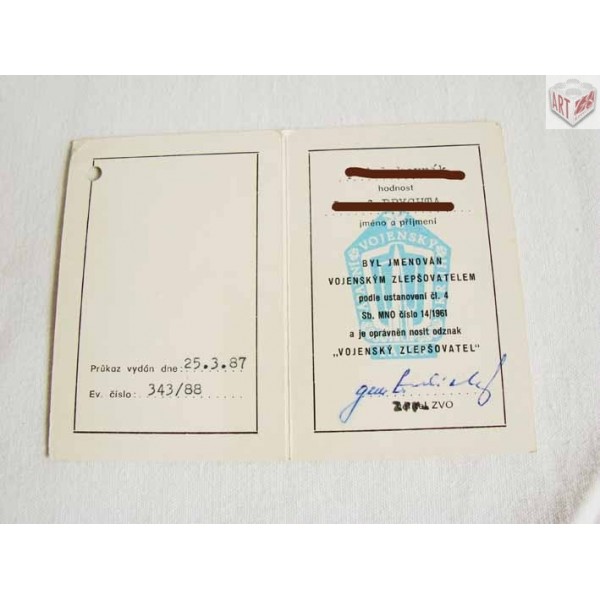 Průkaz vydán dne: 25.3.87
Ev. číslo: 343/88
hodnost
jméno a příjmení
VOJENSKÝ
BYL JMENOVÁN
VOJENSKÝM ZLEPŠOVATELEM
podle ustanovení čl. 4
Sb. MNO číslo 14/1961
a je oprávněn nosit odznak
„VOJENSKÝ ZLEPŠOVATEL"
ZVO
ART